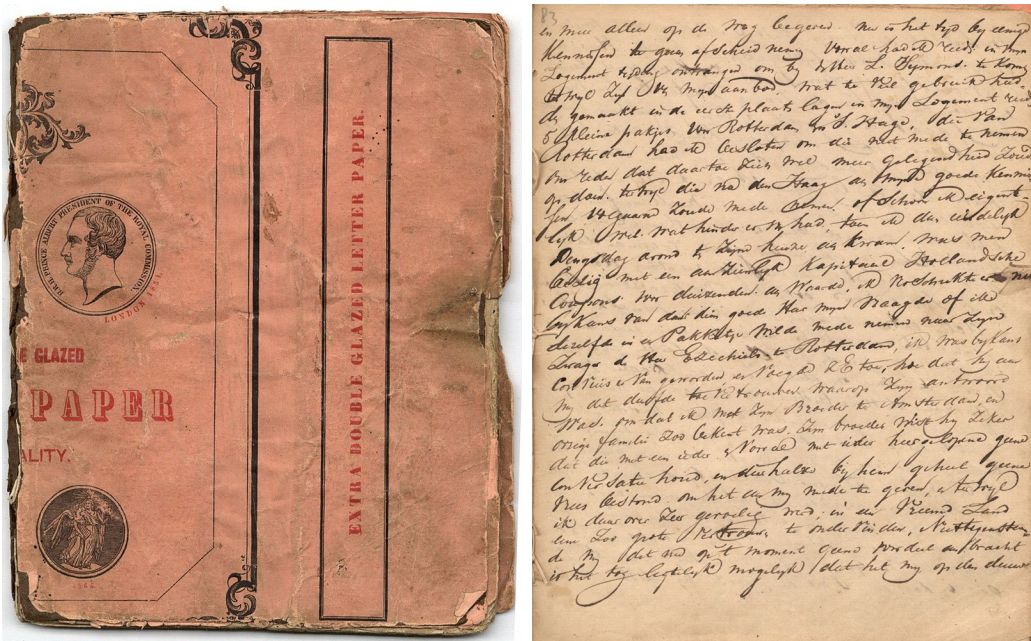 H.R.H. PRINCE ALBERT PRESIDENT OF THE ROYAL COMMISSION.
LONDON 1851.
E GLAZED
PAPER
ALITY.
1862
EXTRA DOUBLE GLAZED LETTER PAPER.
83
en mee alleen op de weg begeven nu is het tyd by eenige
Kennissen te gaan afscheid nemen Vooral had ik reeds in myn
Logement tyding ontvangen om by L. Symons te komen
terwyl Zyn myn aanbod wat te Veel gebruik had
gemaakt in de eerste plaats lagen in myn Logement reeds
5 Kleine pakjes Van Rotterdam en S. Hage, die Van
Rotterdam had ik besloten om die niet mede te nemen
om reden dat daartoe Zich wel meer gelegenheid Zoude
op doen. terwyl die na den Haag goede Kennis
Zoude mede nemen, ofschoon ik eigent
lyk niet wat hinder er in had, toen ik dan eindelyk
Dingsdag avond te Zynen huize kwam. was men
bezig met een aanzienlyk Kapitaal Hollandsche
Coupons. Voor duizenden Waarde, ik
bykans van dat dien goed Heer myn vraagde of ik
dezelfde in een Pakketje wilde mede nemen naar Zyn
Zwager d Heer Ezechiels te Rotterdam, ik was bykans
geworden en Vraagde ZE toe, hoe dat hy aan
my dit durfde toe Vertrouwen waarop Zyn antwoord
was. om dat ik met Zyn Broeder te Amsterdam, en
overige familie Zoo bekent was. Zyn broeder wist hy Zeker
dat die met een ieder Vooral met ieder heergelopene geene
Conversatie houd, en derhalve by hem geheel geene
Vrees bestond om het aan my mede te geven, terwyl
ik daar over Zeer gevoelig was, in een Vreemd Land
een Zoo groote Vertrouwen te ondervinden, Niettegenstaan
de my dit op 't moment geene voordeel aanbracht
is het tog ligtelyk mogelyk dat het my op den duur